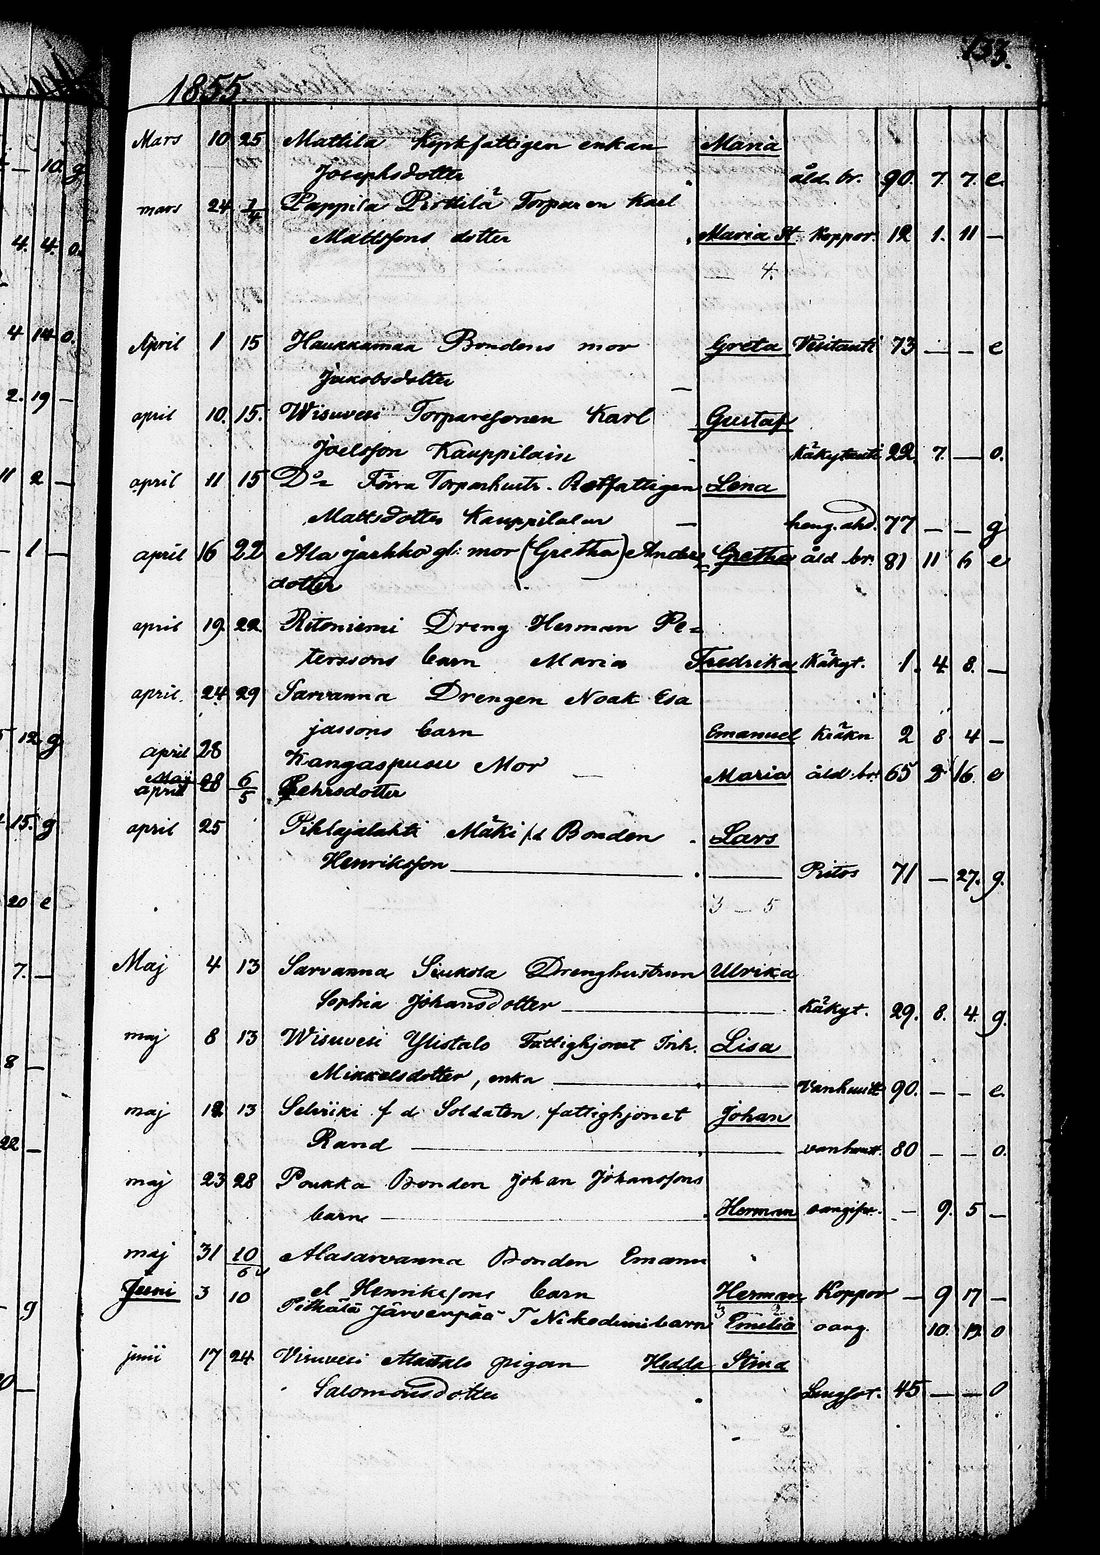 133.
1855.
Mars 10 25 Mattila Kyrkfattigen enkan Maria
Josephsdotter åld. br. 90. 7. 7. e.
mars 24 1/4 Pappila Pirttilä Torparen Karl
Mattssons dotter Maria St. Koppor. 12 1. 11 —
4.
April 1 15 Haukkamaa Bondens mor Greta 73 — — e
Jakobsdotter —
april 10. 15. Wisuvesi Torparesonen Karl Gustaf
Joelsson Kauppilain 22. 7. — o.
april 11 15 Do Förra Torparhustr. Rotfattigen Lena
Mattsdotter Kauppilalar — 77 — — g
april 16 22 Ala jaskko gl: mor (Gretha) Anders Gretha åld br. 81 11 6 e
dotter
april 19. 22 Ritoniemi Dreng Herman Pe-
terssons barn Maria Fredrika Käkyt. 1. 4 8. —
april. 24. 29 Sarvanna Drengen Noak Esa
jassons barn Emanuel Kräkn 2 8 4 —
april 28 Kangaspusu Mor — Maria åld. br. 65 2 16. e
Maj
april 28 6/5 Gehrsdotter
april 25 Pihlajalahti Mäki f.d Bonden Lars
Henriksson 71 — 27. g.
3 — 5
Maj 4 13 Sarvanna Siukola Drenghustrun Ulrika
Sophia Johansdotter Käkyt. 29. 8. 4. g.
maj 8 13 Wisuvesi Ylistalo Fattighjonet Inh. Lisa
Mikkelsdotter, enka 90. — — e.
maj 12 13 Selviiki f d. Soldaten fattighjonet Johan
Rand 80 — — o.
maj 23 28 Poukka Bonden Johan Johanssons
barn Herman — 9. 5 —
maj 31 10/6 Alasarvanna Bonden Emanu
el Henrikssons barn Herman Koppor — 9 17 —
Juni 3 10 Pitkälä Järvenpää T Nikodimi barn Emelia 10. 19. o
juni 17 24 Visuvesi pigan Hedda Stina
Salomonsdotter 45 — — o